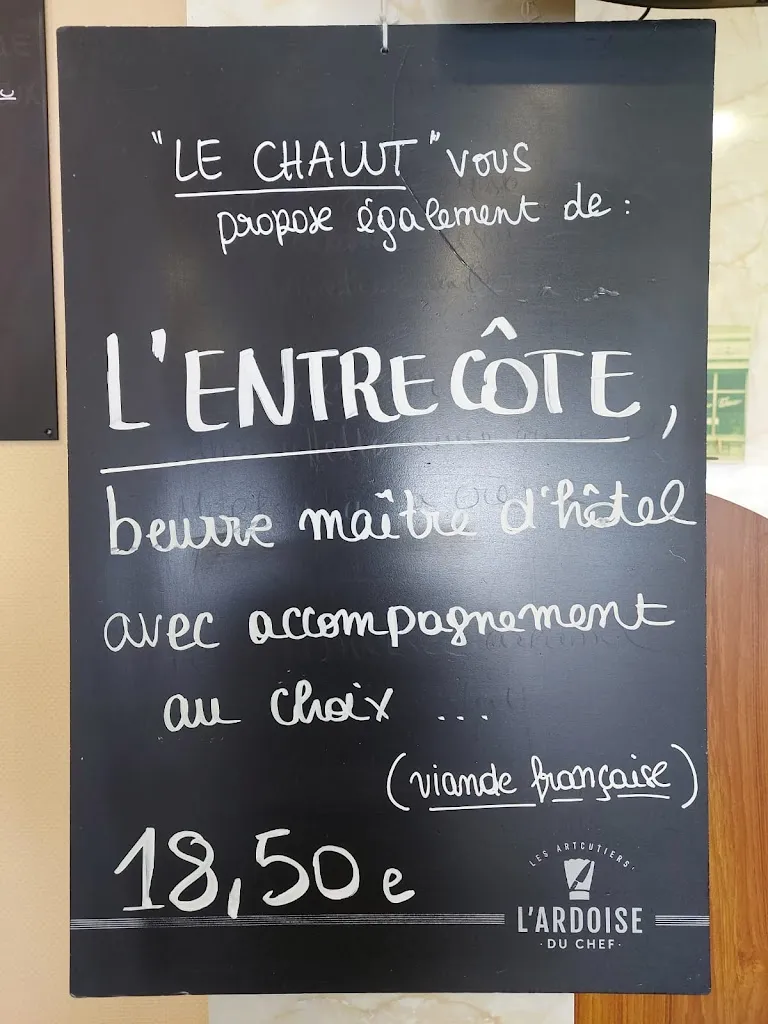 "LE CHALUT" vous
propose également de :
L'ENTRECÔTE,
beurre maître d'hôtel
avec accompagnement
au choix ...
(viande française)
18,50 e
LES ARTCUTIERS
L'ARDOISE
· DU CHEF ·